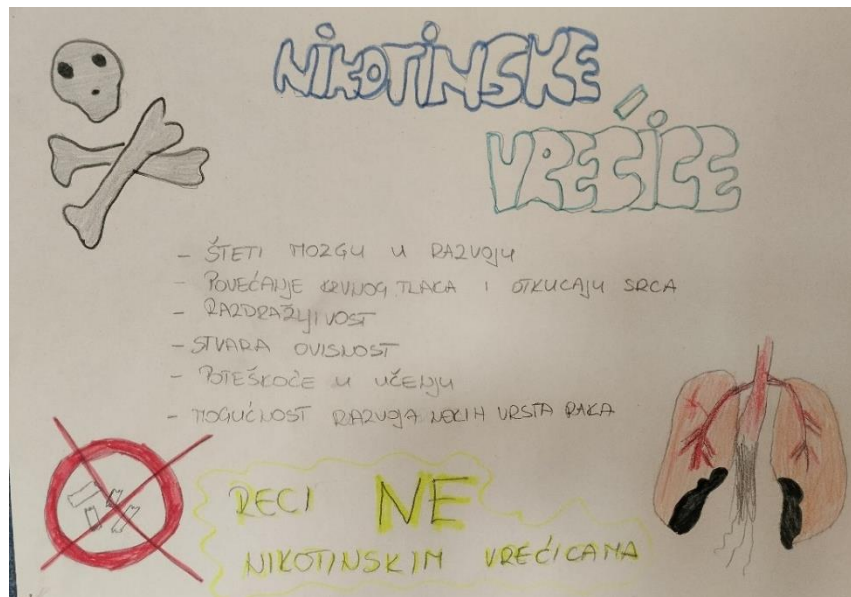 NIKOTINSKE
VREĆICE
- ŠTETI MOZGU U RAZVOJU
- POVEĆANJE KRVNOG TLAKA I OTKUCAJU SRCA
- RAZDRAŽLJIVOST
- STVARA OVISNOST
- POTEŠKOĆE U UČENJU
- MOGUĆNOST RAZVOJA NEKIH VRSTA RAKA
RECI NE
NIKOTINSKIM VREĆICAMA